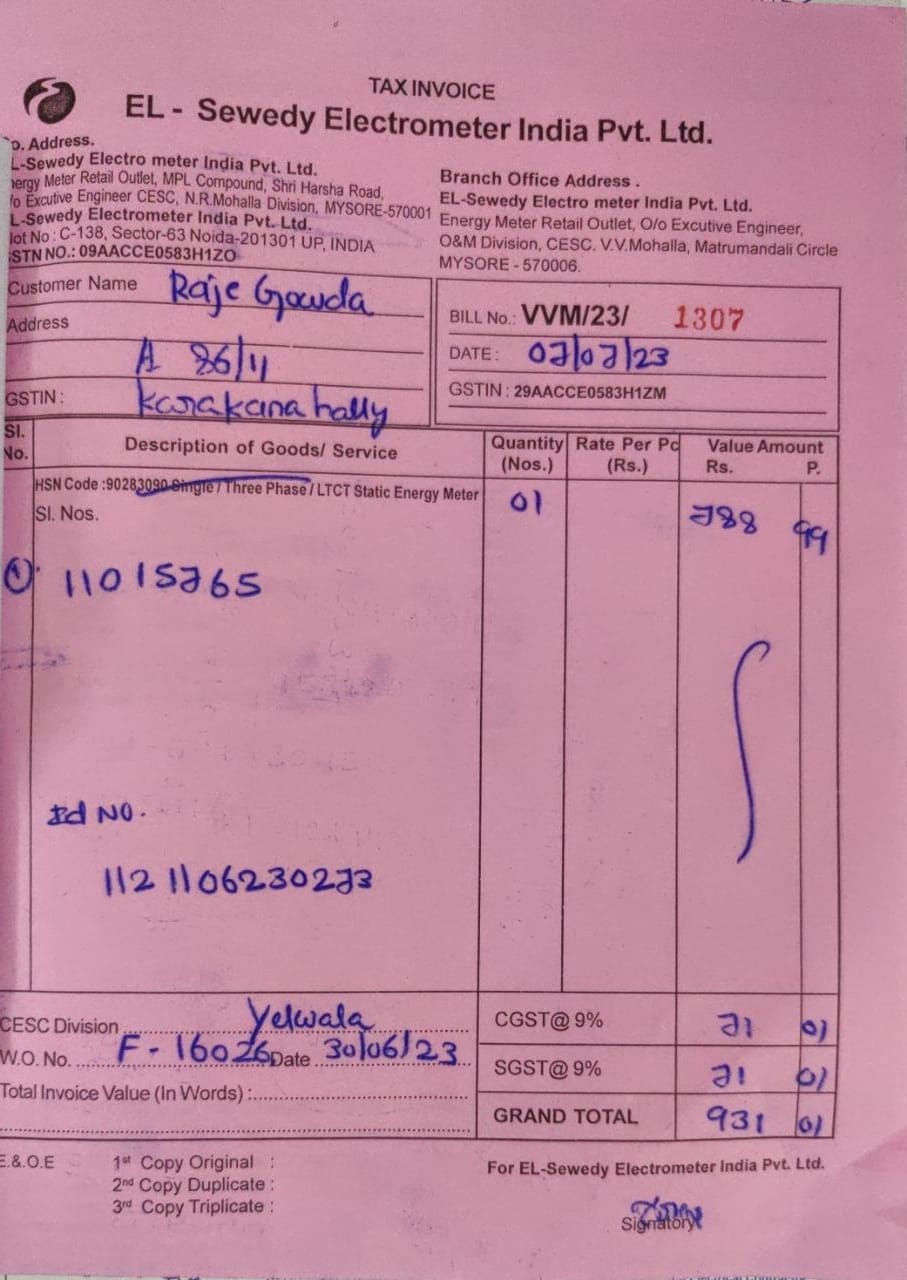 TAX INVOICE
EL - Sewedy Electrometer India Pvt. Ltd.
o. Address.
L-Sewedy Electro meter India Pvt. Ltd.
nergy Meter Retail Outlet, MPL Compound, Shri Harsha Road,
/o Excutive Engineer CESC, N.R.Mohalla Division, MYSORE-570001
L-Sewedy Electrometer India Pvt. Ltd.
lot No : C-138, Sector-63 Noida-201301 UP, INDIA
STN NO.: 09AACCE0583H1ZO
Branch Office Address .
EL-Sewedy Electro meter India Pvt. Ltd.
Energy Meter Retail Outlet, O/o Excutive Engineer,
O&M Division, CESC. V.V.Mohalla, Matrumandali Circle
MYSORE - 570006.
Customer Name Raje Gowda
Address
A 86/11
GSTIN : Karakanahally
BILL No.: VVM/23/ 1307
DATE : 07/07/23
GSTIN : 29AACCE0583H1ZM
Sl. No. Description of Goods/ Service Quantity (Nos.) Rate Per Pc (Rs.) Value Amount Rs. P.
HSN Code :90283090 Single / Three Phase / LTCT Static Energy Meter 01 788 99
Sl. Nos.
1 11015765
Id NO.
1121106230273
CESC Division Yelwala
W.O. No. F - 16026 Date 30/06/23
Total Invoice Value (In Words) :
CGST@ 9% 71 01
SGST@ 9% 71 01
GRAND TOTAL 931 01
E.&.O.E
1st Copy Original :
2nd Copy Duplicate :
3rd Copy Triplicate :
For EL-Sewedy Electrometer India Pvt. Ltd.
Signatory